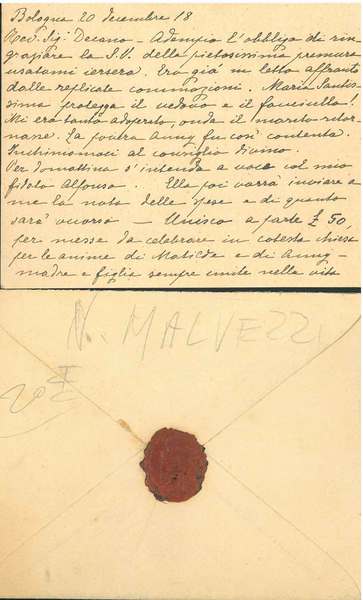 Bologna 20 decembre 18
Rev. Sig. Decano – Adempio l'obbligo di rin-
graziare la S.V. della pietosissima premura
usatami iersera. Ero già in letto affranto
dalle replicate commozioni. Maria Santis-
sima protegga il vedovo e il fanciullo!
Mi ero tanto adoperato, onde il marito ritor-
nasse. La povera Anny fu così contenta.
Inchiniamoci al consiglio divino.
Per domattina s'intenda a voce col mio
fidato Alfonso. Ella poi vorrà inviare a
me la nota delle spese e di quanto
sarà occorso — Unisco a parte £ 50,
per messe da celebrare in cotesta chiesa
per le anime di Matilde e di Anny –
madre e figlia sempre unite nella vita
N. MALVEZZI